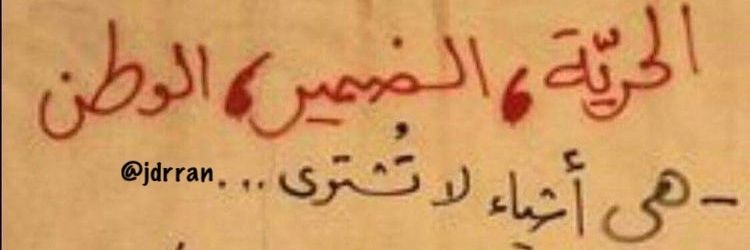 الحريّة ، الضمير ، الوطن
- هي أشياء لا تُشترى ...
@jdrran